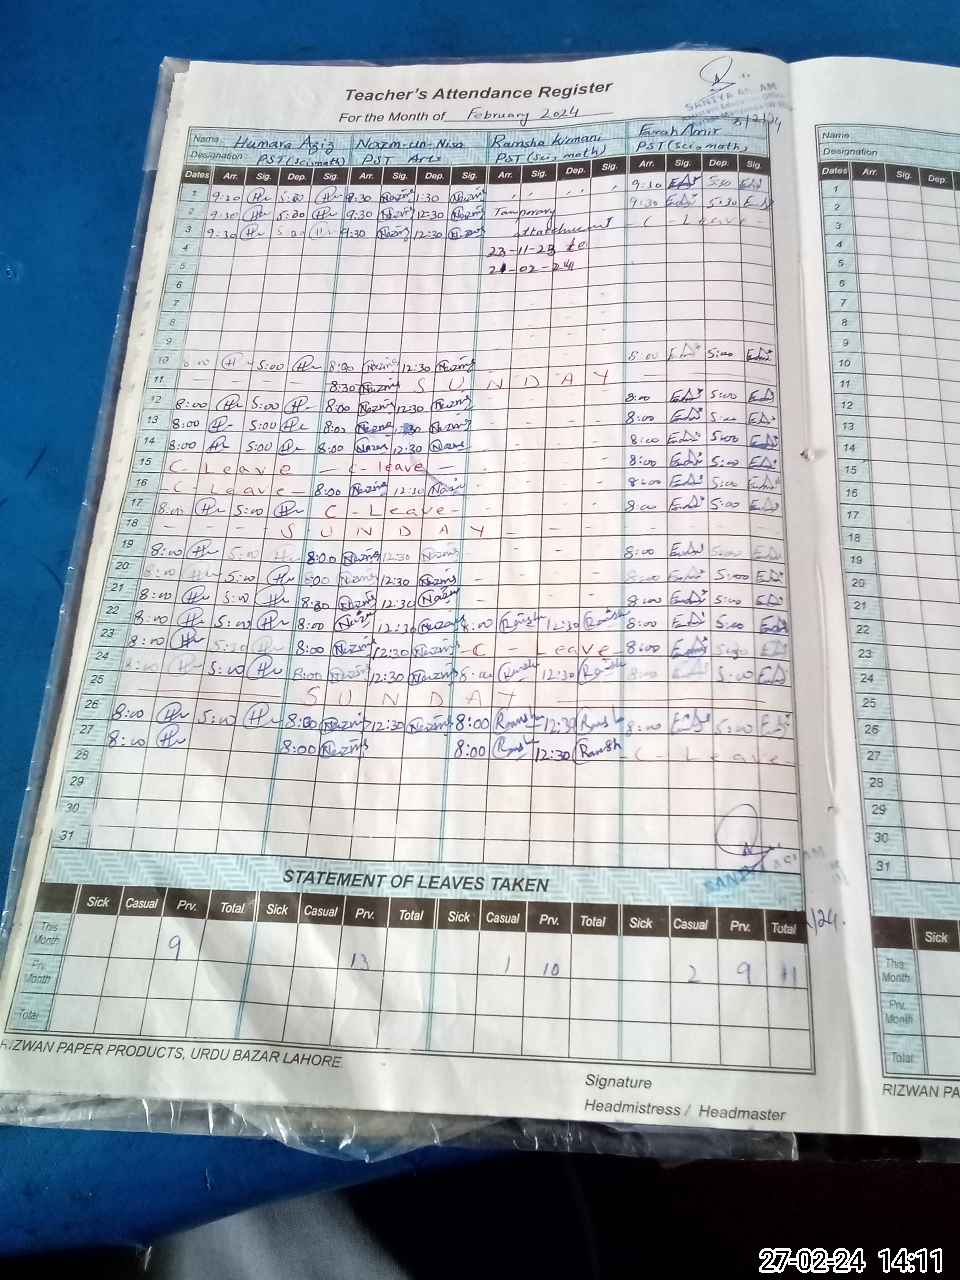 Teacher's Attendance Register
For the Month of February 2024
SANIYA
Name Humara Aziz Nazm-un-Nisa Ramsha Kirmani Farah Amir
Designation PST (sci, math) PST Arts PST (sci, math) PST (sci, math)
Dates Arr. Sig. Dep. Sig. Arr. Sig. Dep. Sig. Arr. Sig. Dep. Sig. Arr. Sig. Dep. Sig.
1 9:20 5:00 8:30 Nazm 1:30 Nazm 9:30 5:30
2 9:30 5:20 9:30 Nazm 12:30 Nazm Temporary 9:30 5:30
3 9:30 5:20 9:30 Nazm 12:30 Nazm attachment C - Leave -
4 23-11-23 to
5 21-02-24
6
7
8
9
10 8:00 5:00 8:30 12:30 8:00 5:00
11 8:30 S U N D A Y
12 8:00 5:00 8:00 Nazm 12:30 Nazm 8:00 5:00
13 8:00 5:00 8:00 Nazm 12:30 Nazm 8:00 5:00
14 8:00 5:00 8:00 Nazm 12:30 Nazm 8:00 5:00
15 C - Leave - C - leave - 8:00 5:00
16 - C Leave - 8:00 Nazm 12:30 Nazm 8:00 5:00
17 8:00 5:00 C - Leave - 8:00 5:00
18 - - - S U N D A Y - - - -
19 8:00 5:00 8:00 Nazm 12:30 Nazm 8:00 5:00
20 8:00 5:00 8:00 Nazm 12:30 Nazm 8:00 5:00
21 8:00 5:00 8:30 Nazm 12:30 Nazm 8:00 5:00
22 8:00 5:00 8:00 Nazm 12:30 Nazm 8:00 Ramsh 12:30 Ramsh 8:00 5:00
23 8:00 5:20 8:00 Nazm 12:30 Nazm - C - Leave - 8:00 5:00
24 8:00 5:00 8:00 Nazm 12:30 Nazm 8:00 Ramsh 12:30 Ramsh 8:00 5:00
25 S U N D A Y
26 8:00 5:00 8:00 Nazm 12:30 Nazm 8:00 Ramsh 12:30 Ramsh 8:00 5:00
27 8:00 8:00 Nazm 8:00 Ramsh 12:30 Ramsh - C - Leave -
28
29
30
31
STATEMENT OF LEAVES TAKEN
Sick Casual Prv. Total Sick Casual Prv. Total Sick Casual Prv. Total Sick Casual Prv. Total
This Month 9 13 1 10 2 9 11
Prv. Month
Total
RIZWAN PAPER PRODUCTS, URDU BAZAR LAHORE.
Signature
Headmistress / Headmaster
Name
Designation
Dates Arr. Sig. Dep.
1
2
3
4
5
6
7
8
9
10
11
12
13
14
15
16
17
18
19
20
21
22
23
24
25
26
27
28
29
30
31
Sick
This Month
Prv. Month
Total
RIZWAN PA
27-02-24 14:11